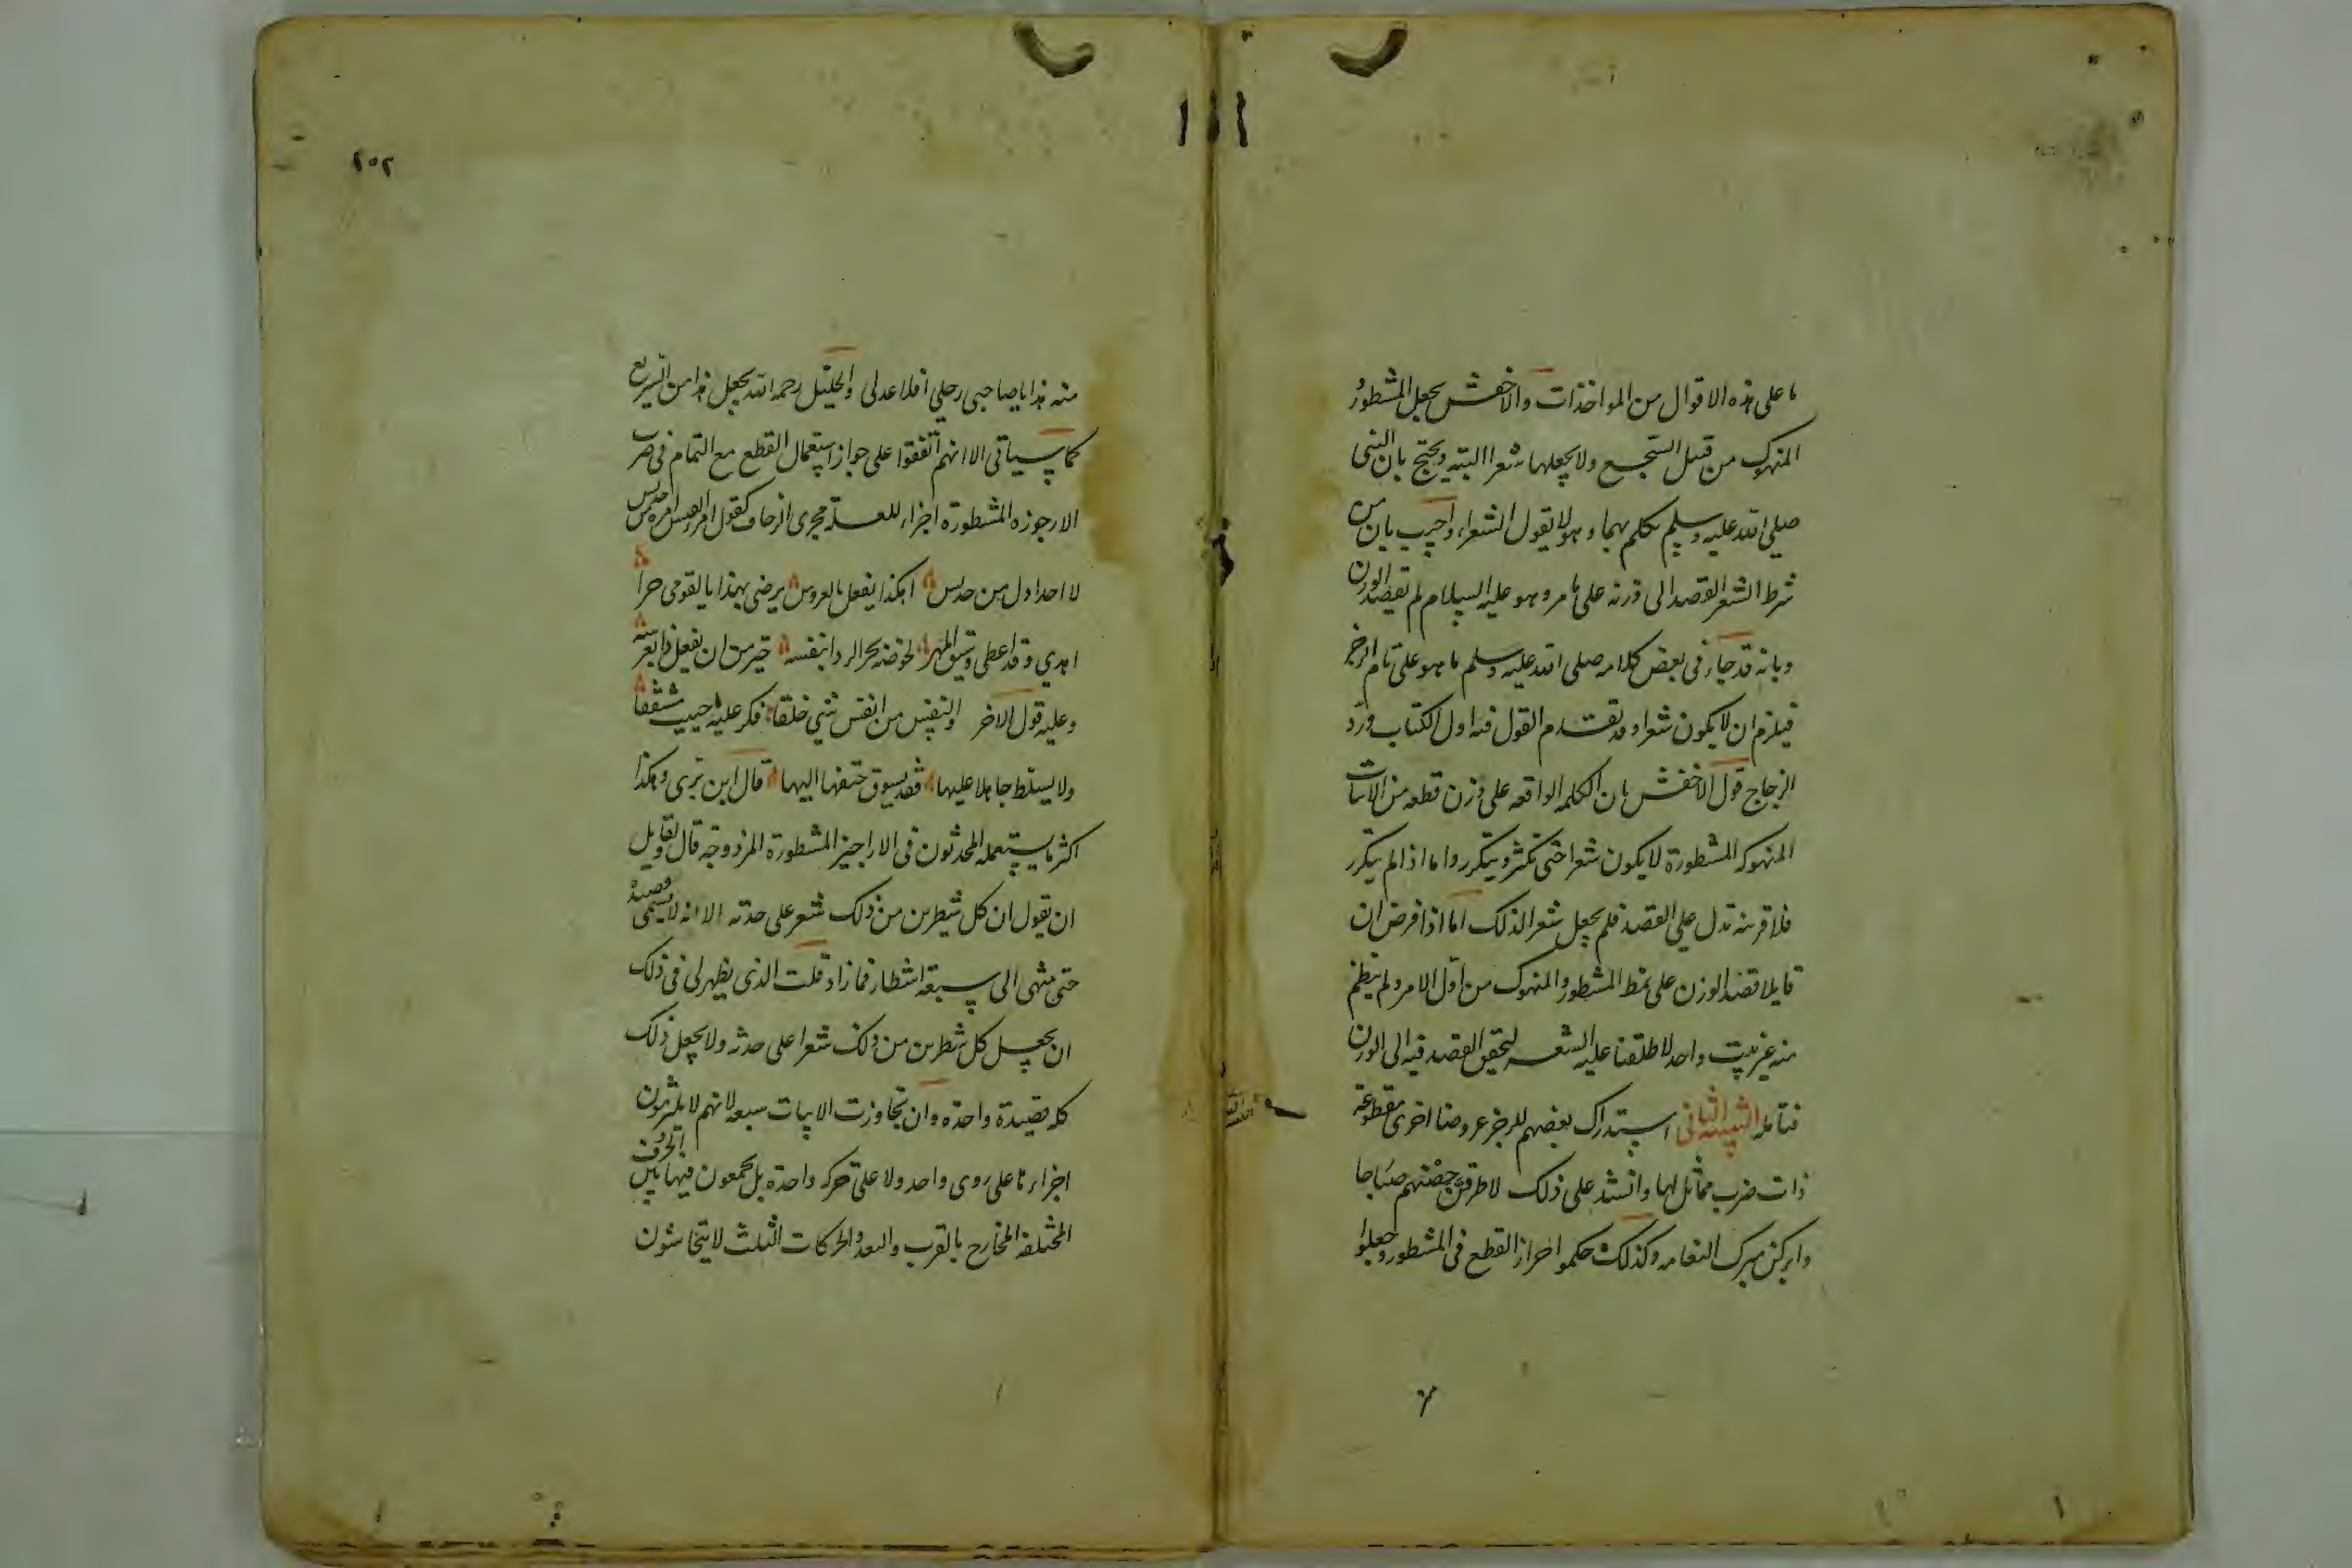 ما على هذه الاقوال من المواخذات والاخفش يجعل المشطور و
المنهوك من قبيل السجع ولا يجعلها شعرا البته ويحتج بان النبى
صلى الله عليه وسلم تكلم بهما وهو لا يقول الشعر، واجيب بان من
شرط الشعر القصد الى وزنه على ما مر وهو عليه السلام لم يقصد الوزن
وبانه قد جاء فى بعض كلامه صلى الله عليه وسلم ما هو على تام الرجز
فيلزم ان لا يكون شعرا وقد تقدم القول فيه اول الكتاب ورد
الزجاج قول الاخفش بان الكلمه الواقعه على وزن قطعه من الابيات
المنهوكه المشطورة لا يكون شعرا حتى تكثر ويتكرر واما اذا لم يتكرر
فلا قرينه تدل على القصد فلم يجعل شعرا لذلك اما اذا فرض ان
قايلا قصد الوزن على نمط المشطور والمنهوك من اول الامر ولم ينظم
منه غير بيت واحد لاطلقنا عليه الشعر لتحقق القصد فيه الى الوزن
فتامله التنبيه الثانى استدرك بعضهم للرجز عروضا اخرى مقطوعة
ذات ضرب مماثل لها وانشد على ذلك لاطرقن حصنهم صباحا
وابركن مبرك النعامه وكذلك حكموا جواز القطع فى المشطور وجعلوا
٢٥٢
منه هذا يا صاحبى رحلى اقلا عدلى والخليل رحمه الله يجعل هذا من السريع
كما سياتى الا انهم اتفقوا على جواز استعمال القطع مع التمام فى ضرب
الارجوزه المشطورة اجراء للعلة مجرى الزحاف كقول امراة من جديس
لا احد اذل من جديس اهكذا يفعل بالعروس يرضى بهذا يا لقومى حر
اهدى وقد اعطى وسيق المهر لخوضه بحر الردا بنفسه خير من ان يفعل ذا بعرسه
وعليه قول الاخر والنفس من انفس شى خلقا فكن عليه ما حييت مشفقا
ولا يسلط جاهلا عليها فقد يسوق حتفها اليها قال ابن برى وهكذا
اكثر ما يستعمله المحدثون فى الاراجيز المشطورة المزدوجة قال ولقايل
ان يقول ان كل شطرين من ذلك شعر على حدته الا انه لا يسمى قصيدة
حتى ينتهى الى سبعة اشطار فما زاد قلت الذى يظهر لى فى ذلك
ان يجعل كل شطرين من ذلك شعرا على حدثه ولا يجعل ذلك
كله قصيدة واحدة وان تجاوزت الابيات سبعه لانهم لا يلتزمون
اجراءنا على روى واحد ولا على حركه واحدة بل يجمعون فيها بين الحروف
المختلفه المخارج بالقرب والبعد والحركات الثلث لا يتحاشون